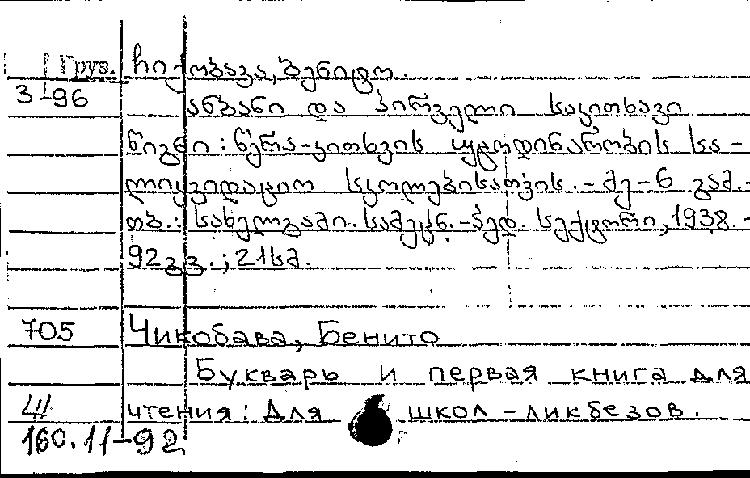 Груз. ჩიქობავა, ბენიტო.
3-96 ანბანი და პირველი საკითხავი
წიგნი: წერა-კითხვის უცოდინარობის სა-
ლიკვიდაციო სკოლებისათვის. - მე-6 გამ. -
თბ.: სახელგამი. სამეცნ.-პედ. სექტორი, 1938. -
92 გვ.; 21 სმ.
705 Чикобава, Бенито
Букварь и первая книга для
чтения: Для школ-ликбезов.
160.11-92